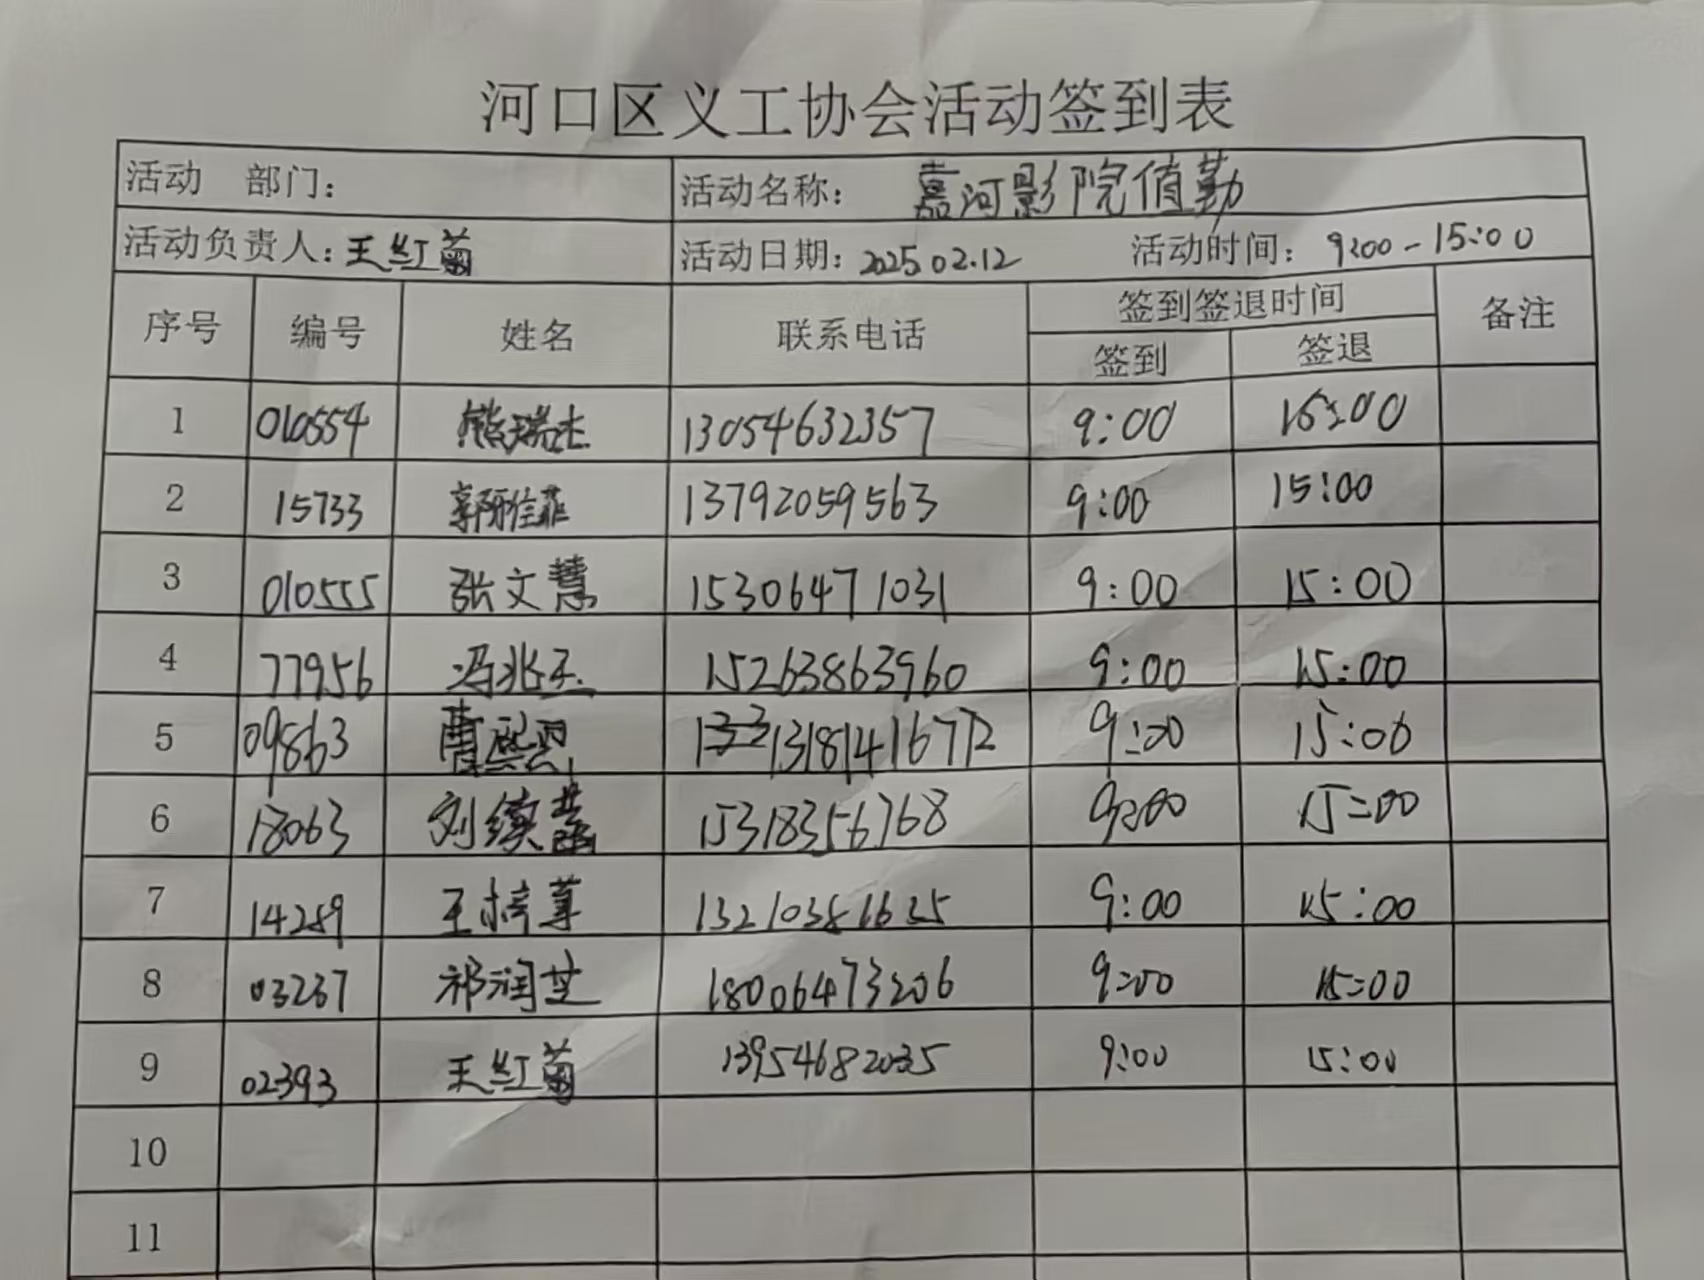 河口区义工协会活动签到表
活动 部门： 活动名称： 嘉河影院值勤
活动负责人：王红菊 活动日期：2025.02.12 活动时间：9:00-15:00
序号 编号 姓名 联系电话 签到签退时间 备注
签到 签退
1 010554 熊瑞杰 13054632357 9:00 15:00
2 15733 郭雅菲 13792059563 9:00 15:00
3 010555 张文慧 15306471031 9:00 15:00
4 77956 冯兆玉 15263863960 9:00 15:00
5 09863 曹熙 13181416772 9:00 15:00
6 18063 刘 15318356768 9:00 15:00
7 14289 王梓 13210386635 9:00 15:00
8 03237 祁润芝 18006473206 9:00 15:00
9 02393 王红菊 13954682035 9:00 15:00
10
11